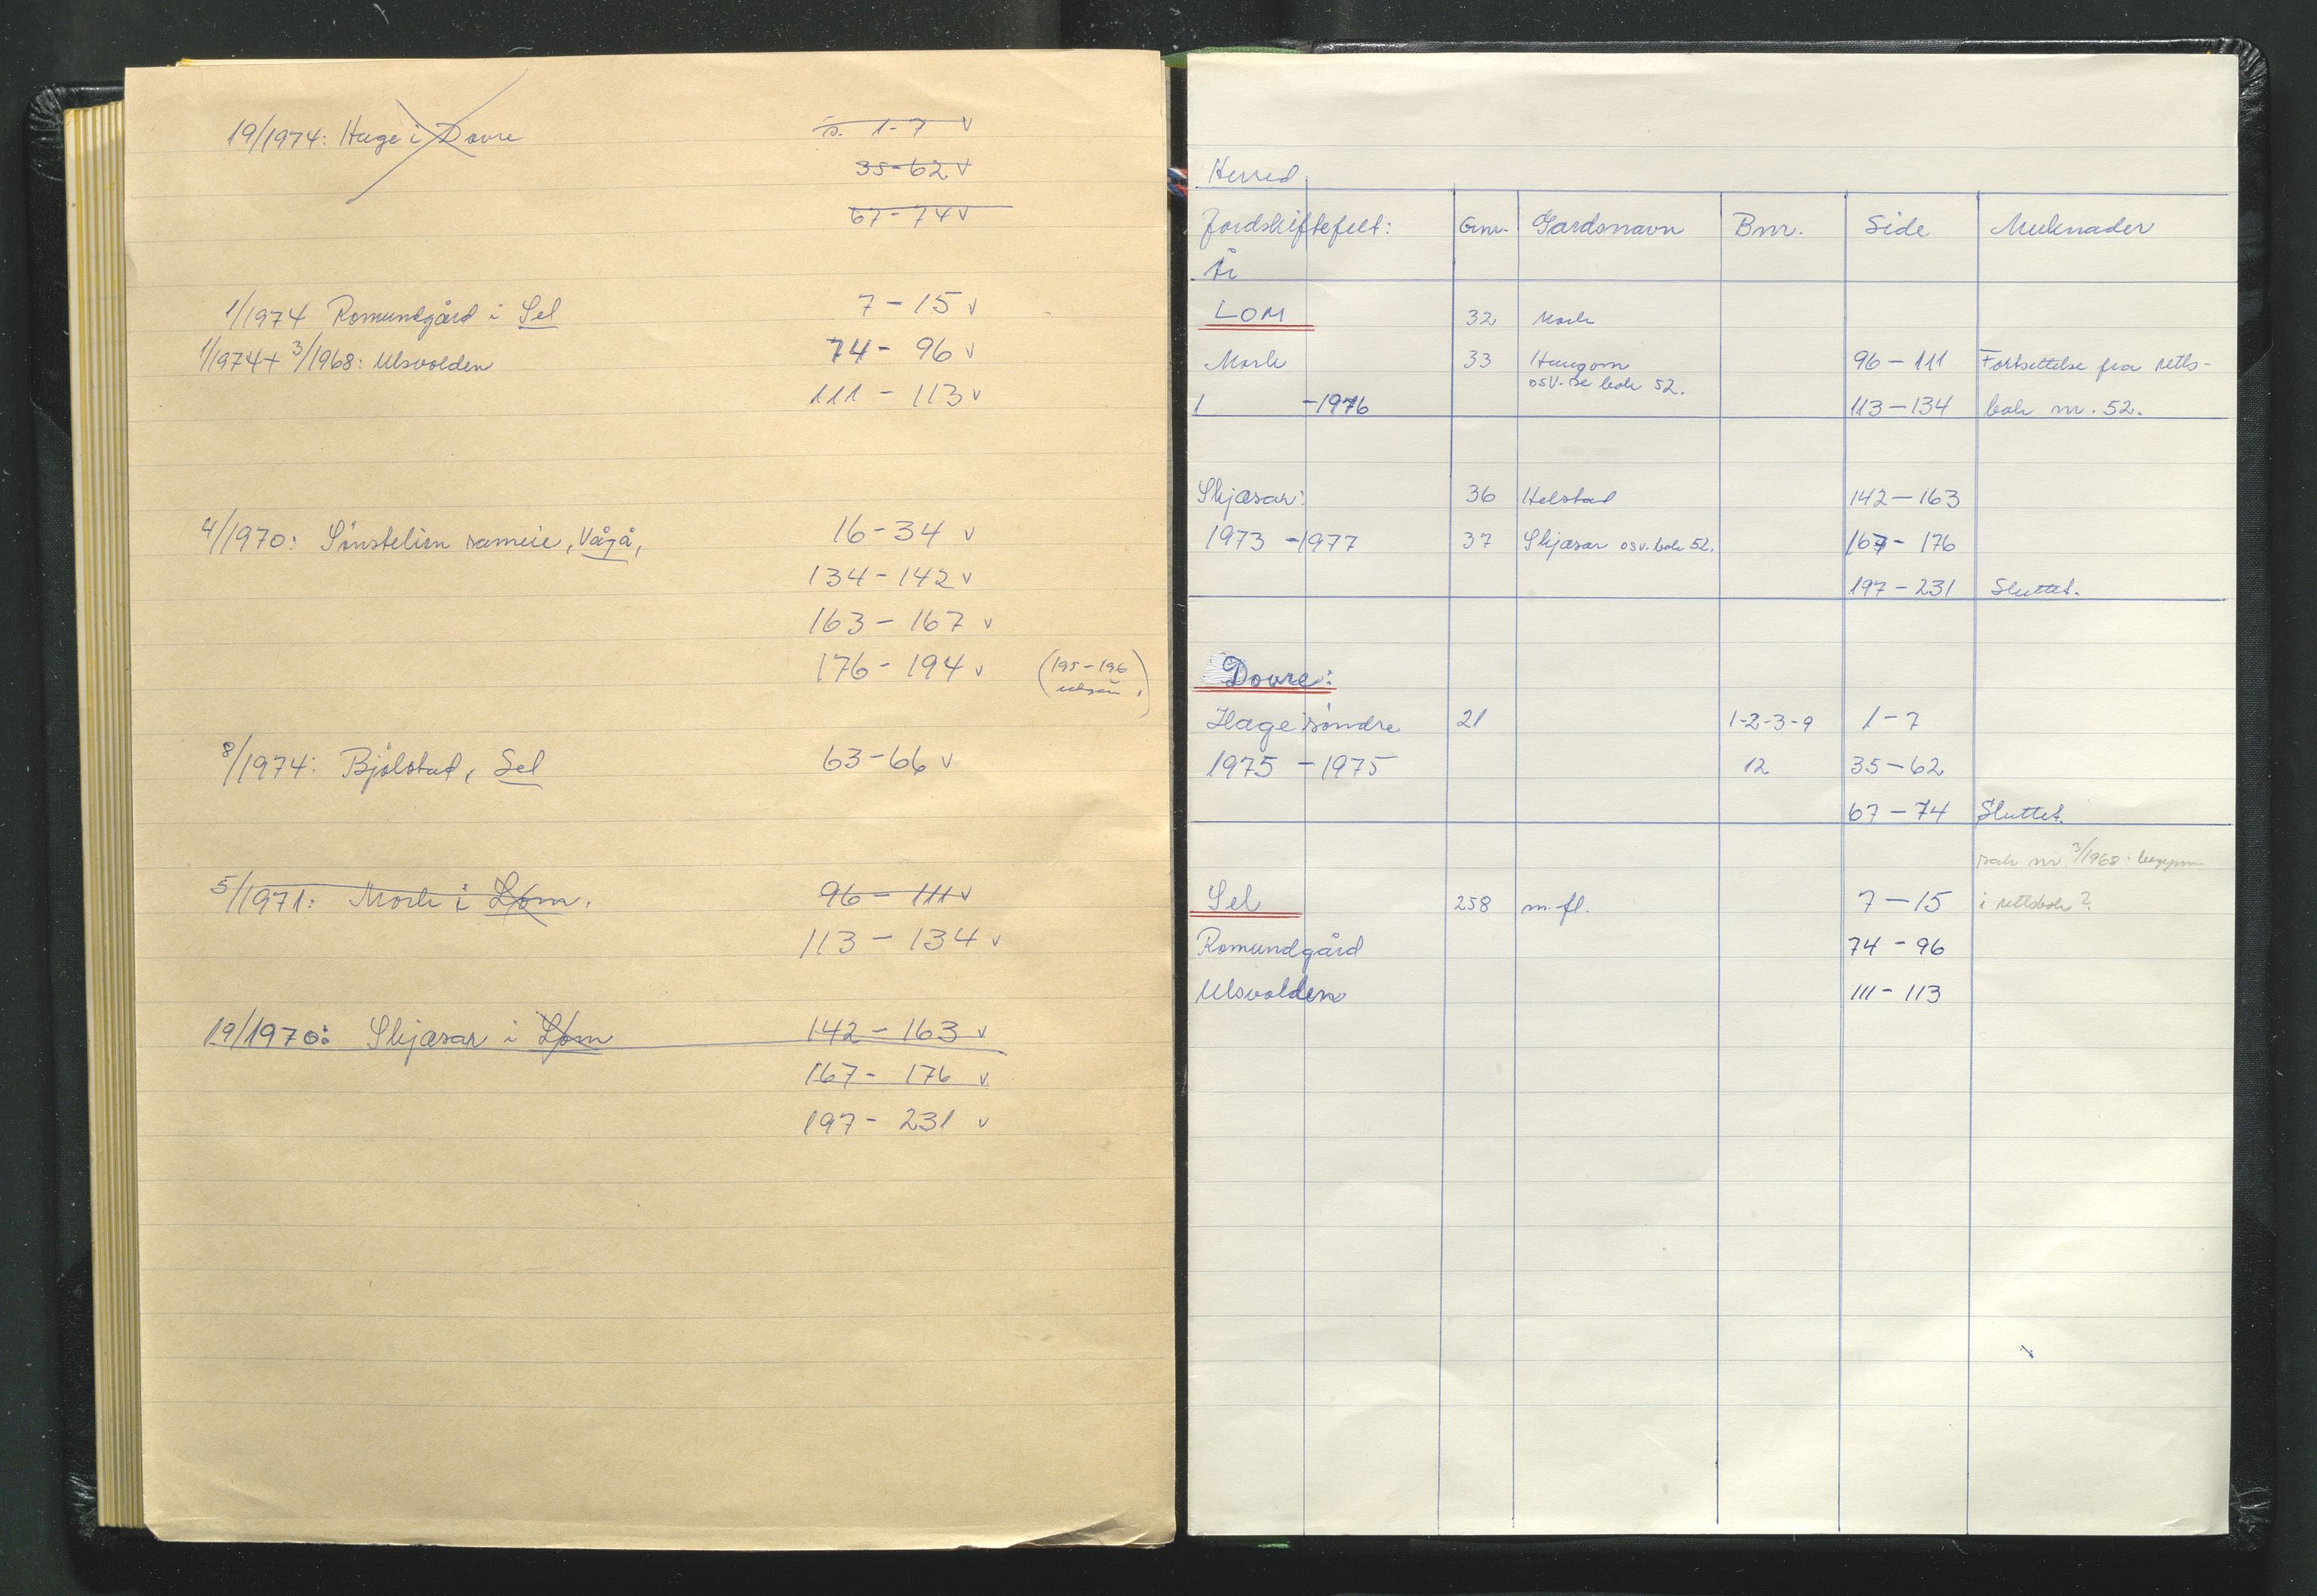 19/1974: Hage i Dovre s. 1-7 v
35-62 v
67-74 v
1/1974 Romundgård i Sel 7-15 v
1/1974 + 3/1968: Ulsvolden 74-96 v
111-113 v
4/1970: Sönstelien sameie, Vågå, 16-34 v
134-142 v
163-167 v
176-194 v (195-196
8/1974: Bjölstad, Sel 63-66 v
5/1971: Mork i Lom. 96-111 v
113-134 v
19/1970: Skjæsar i Lom 142-163 v
167-176 v
197-231 v
Herred
Jordskiftefelt: Gnr. Gardsnavn Bnr. Side Merknader
År
LOM 32 Mork
Mork 33 Haugom 96-111 Fortsettelse fra retts-
osv. se bok 52.
1 -1976 113-134 bok nr. 52.
Skjæsar: 36 Helstad 142-163
1973-1977 37 Skjæsar osv. bok 52. 167-176
197-231 Sluttet.
Dovre:
Hage söndre 21 1-2-3-9 1-7
1975-1975 12 35-62
67-74 Sluttet.
sak nr. 3/1968
Sel 258 m.fl. 7-15 i rettsbok?
Romundgård 74-96
Ulsvolden 111-113